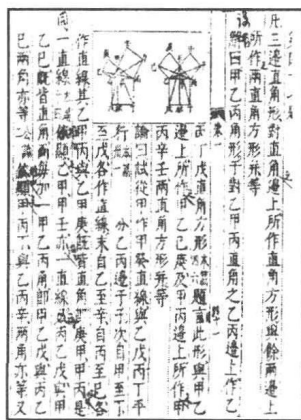 凡三邊直角形對直角邊上所作直角方形與餘兩邊上
所作兩直角方形并等
解曰甲乙丙角形于對乙甲丙直角之乙丙邊上作乙
丙丁戊直角方形 題言此形與甲乙
邊上所作甲乙己庚及甲丙邊上所作甲
丙辛壬兩直角方形并等
論曰試從甲作甲癸直線與乙戊丙丁平
行 分乙丙邊于子次自甲至丁
至戊各作直線末自乙至辛自丙至己各
作直線其乙甲丙與乙甲庚既皆直角即庚甲丙是
一直線 依顯乙甲壬亦一直線又丙乙戊與甲
乙己既皆直角而每加一甲乙丙角即甲乙戊與丙乙
己兩角亦等 依顯甲丙丁與乙丙辛兩角亦等又